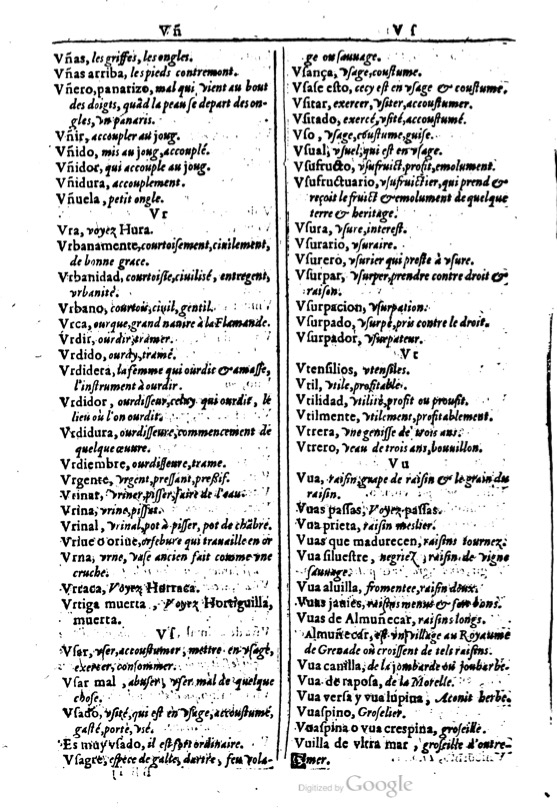 Vñ
Vñas, les griffes, les ongles.
Vñas arriba, les pieds contremont.
Vñero, panarizo, mal qui vient au bout
des doigts, quãd la peau se depart des on-
gles, vn panaris.
Vñir, accoupler au joug.
Vñido, mis au joug, accouplé.
Vñidor, qui accouple au joug.
Vñidura, accouplement.
Vñuela, petit ongle.
Vr
Vra, voyez Hura.
Vrbanamente, courtoisement, ciuilement,
de bonne grace.
Vrbanidad, courtoisie, ciuilisé, entregent,
vrbanité.
Vrbano, courtois, ciuil, gentil.
Vrca, ourque, grand nauire à la Flamande.
Vrdir, ourdir, tramer.
Vrdido, ourdy, tramé.
Vrdidera, la femme qui ourdit & amasse,
l'instrument à ourdir.
Vrdidor, ourdisseur, celuy qui ourdit, le
lieu où l'on ourdit.
Vrdidura, ourdisseure, commencement de
quelque œuure.
Vrdiembre, ourdisseure, trame.
Vrgente, vrgent, pressant, pressif.
Vrinar, vriner, pisser, faire de l'eau.
Vrina, vrine, pissat.
Vrinal, vrinal, pot à pisser, pot de chãbre.
orfebure qui trauaille en or
Vrna, vrne, vase ancien fait comme vne
cruche.
Vrraca, Voyez Horraca.
Vrtiga muerta, Voyez Hortiguilla,
muerta.
Vs
Vsar, vser, accoustumer, mettre en vsage,
exercer, consommer.
Vsar mal, abuser, vser mal de quelque
chose.
Vsado, vsité, qui est en vsage, accoustumé,
gasté, porté, vsé.
Es muy vsado, il est fort ordinaire.
Vsagre, espece de galle, dartre, feu vola-
Vs
ge ou sauuage.
Vsança, vsage, coustume.
Vsase esto, cecy est en vsage & coustume.
Vsitar, exercer, vsiter, accoustumer.
Vsitado, exercé, vsité, accoustumé.
Vso, vsage, coustume, guise.
Vsual, vsuel, qui est en vsage.
Vsufructo, vsufruict, profit, emolument.
Vsufructuario, vsufruictier, qui prend &
reçoit le fruict & emolument de quelque
terre & heritage.
Vsura, vsure, interest.
Vsurario, vsuraire.
Vsurero, vsurier qui preste à vsure.
Vsurpar, vsurper, prendre contre droit &
raison.
Vsurpacion, vsurpation.
Vsurpado, vsurpé, pris contre le droit.
Vsurpador, vsurpateur.
Vt
Vtensilios, vtensiles.
Vtil, vtile, profitable.
Vtilidad, vtilité, profit ou proufit.
Vtilmente, vtilement, profitablement.
Vtrera, vne genisse de trois ans.
Vtrero, veau de trois ans, bouuillon.
Vu
Vua, raisin, grape de raisin & le grain du
raisin.
Vuas passas, Voyez passas.
Vua prieta, raisin meslier.
Vuas que madurecen, raisins tournez.
Vua siluestre, raisin de vigne
sauuage.
Vua aluilla, fromentee, raisin doux.
Vuas janies, raisins menus & fort bons.
Vuas de Almuñecar, raisins longs.
Almuñecar, est vn village au Royaume
de Grenade où croissent de tels raisins.
Vua canilla, de la jombarde ou joubarbe.
Vua de raposa, de la Morelle.
Vua versa y vua lupina, Aconit herbe.
Vuaspino, Groselier.
Vuaspina o vua crespina, groseille.
Vuilla de vltra mar, groseille d'outre-
mer.
Digitized by Google